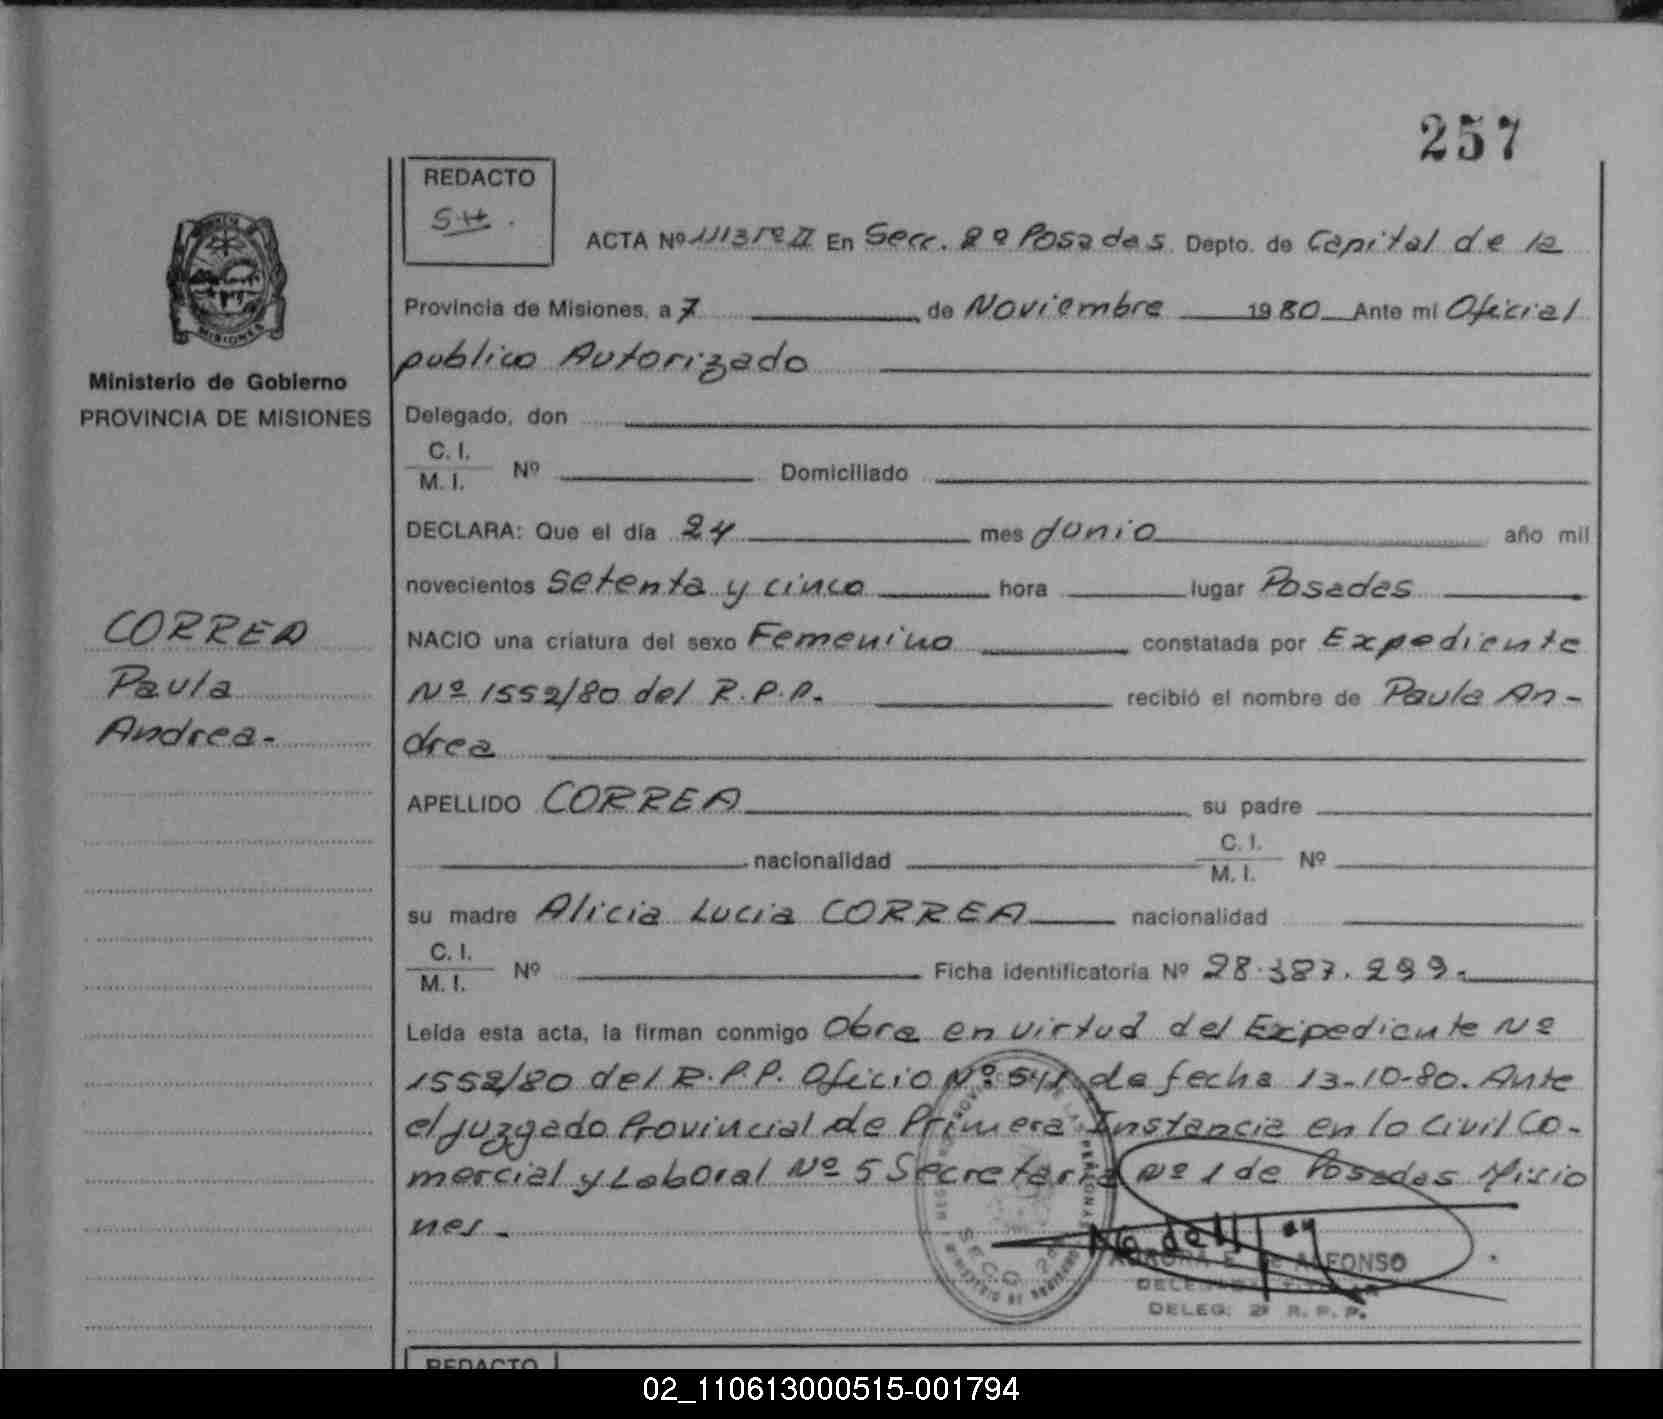 257
REDACTO
S.H.
ACTA Nº 1113 Tº II En Secc. 2º Posadas Depto. de Capital de la
Provincia de Misiones, a 7 de Noviembre 1980 Ante mi Oficial
publico Autorizado
Ministerio de Gobierno
PROVINCIA DE MISIONES
Delegado, don
C. I.
M. I. Nº Domiciliado
DECLARA: Que el día 24 mes Junio año mil
novecientos setenta y cinco hora lugar Posadas
CORREA
Paula
Andrea-
NACIO una criatura del sexo Femenino constatada por Expediente
Nº 1552/80 del R.P.P. recibió el nombre de Paula An-
drea
APELLIDO CORREA su padre
nacionalidad C. I. M. I. Nº
su madre Alicia Lucia CORREA nacionalidad
C. I.
M. I. Nº Ficha identificatoria Nº 28.387.299.
Leída esta acta, la firman conmigo Obra en virtud del Expediente Nº
1552/80 del R.P.P. Oficio Nº 541 de fecha 13-10-80. Ante
el juzgado Provincial de Primera Instancia en lo Civil Co-
mercial y Laboral Nº 5 Secretaria Nº 1 de Posadas Misio
nes.
AURORA E. de ALFONSO
DELEG: 2ª R. P. P.
REDACTO
02_110613000515-001794